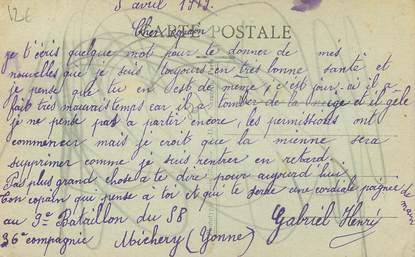 12€
3 avril 1919.
Cher copain
CARTE POSTALE
je t'écris quelque mot pour te donner de mes
nouvelles que je suis toujours en très bonne santé et
je pense que tu en est de meme; c'est jour ci il
fait très mauvais temps car il a tomber de la neige et il gele
je ne pense pas a partir encore, les permissons ont
commencer mais je croit que la mienne sera
supprimer comme je suis rentrer en retard.
Pas plus grand chose a te dire pour aujourd'hui
Ton copain qui pense a toi et qui te serre une cordiale pognée de main
au 9e Bataillon du 58 Gabriel Henri
36e compagnie Michery (Yonne)